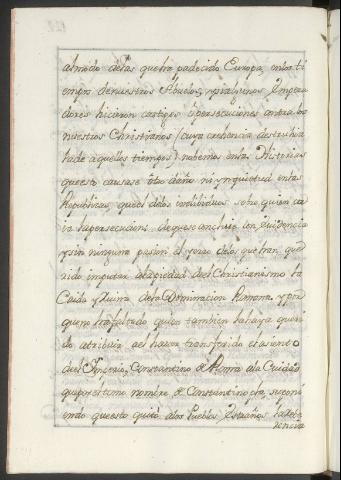 almodo delas que ha padecido Europa, enlos ti
empos de nuestros Abuelos, y si algunos Empera
dores hicieron castigos y persecuciones contra los
nuestros Christianos (cuya crehencia destruhia
la de aquellos tiempos) no vemos en las Historias
que esto causase otro daño ni ynquietud enlas
Republicas, que el delos individuos sobre quien ca
ia la persecucion: de
y sin ninguna pasion el yerro delos que han que
rido imputar ala piedad del Christianismo la
Caida y Ruina dela Dominacion Romana, y por
que no ha faltado quien tambien la haya queri
do atribuir ael haver transferido el asiento
del Ymperio, Constantino de Roma ala Ciudad
que por el tomo nombre de Constantinopla, suponi
endo que esto quitó alos Pueblos Estraños la
dencia